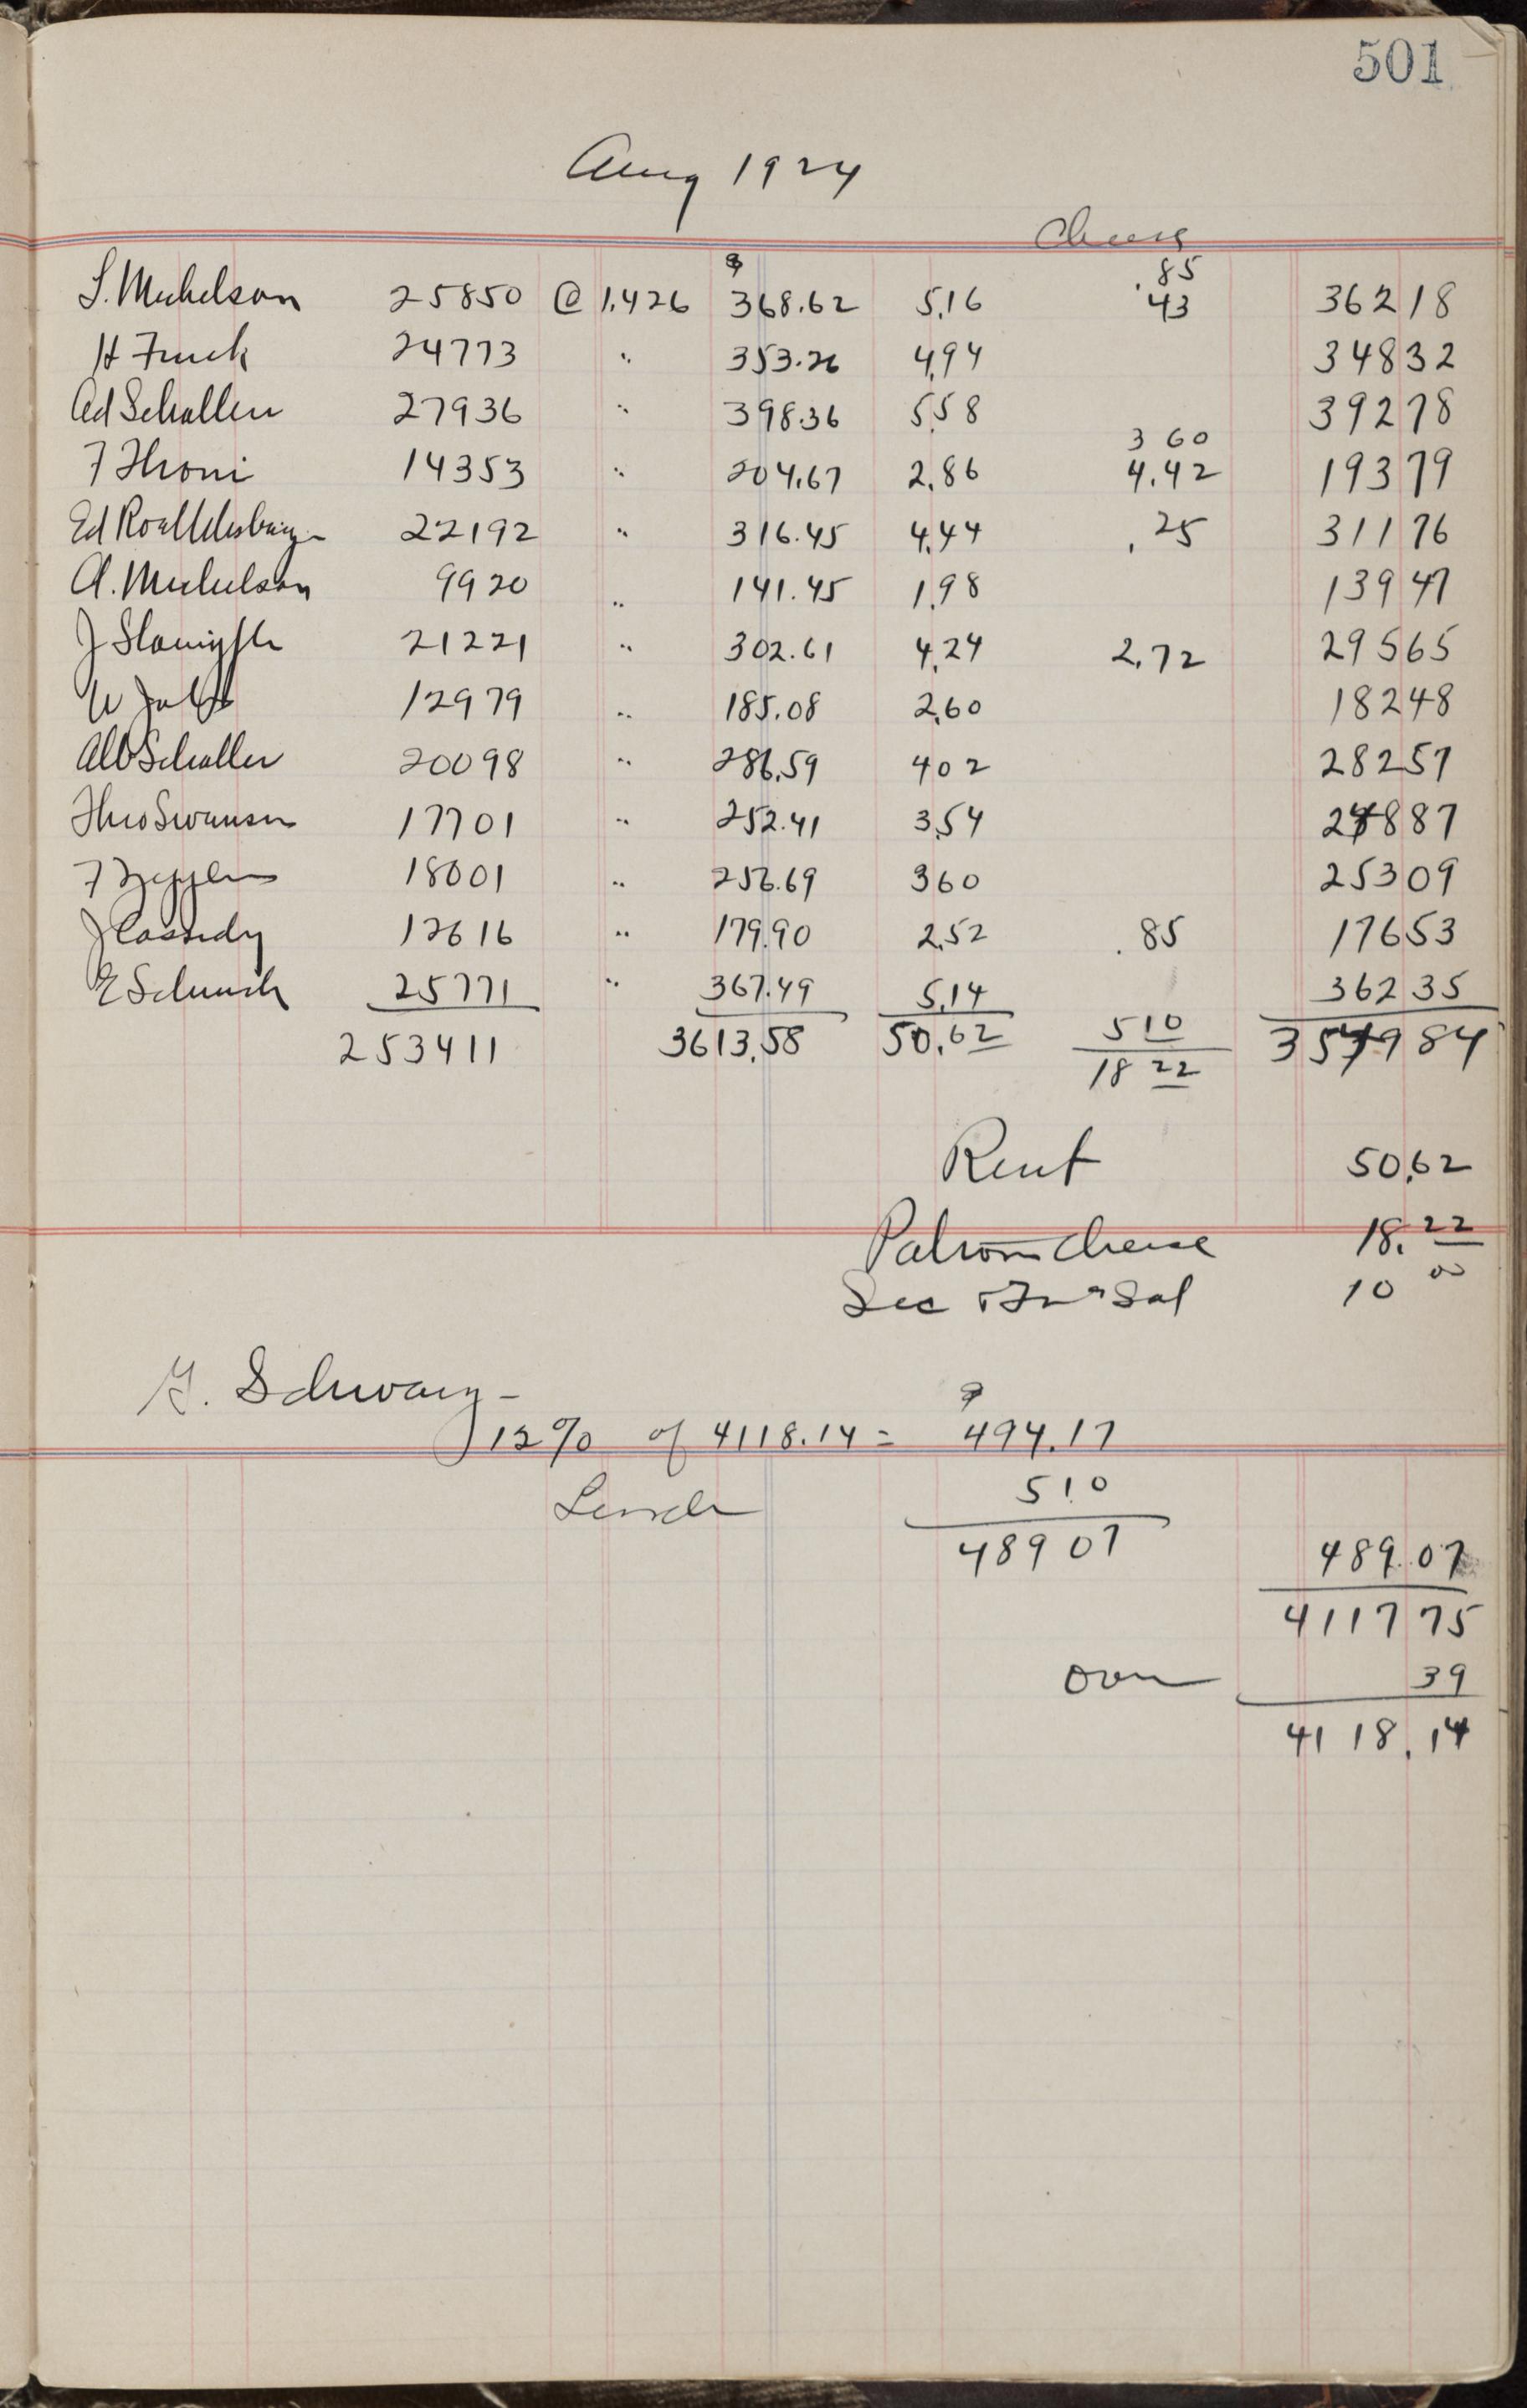 501
Aug 1924
Cheese
$ .85
S. Michelson 25850 @ 1.426 368.62 5.16 43 36218
H Funk 24773 " 353.26 4.94 34832
Ad Schaller 27936 " 398.36 5.58 39278
3 60
F Thoni 14353 " 204.67 2.86 4.42 19379
Ed 22192 " 316.45 4.44 .25 31176
A. Michelson 9920 " 141.45 1.98 13947
J 21221 " 302.61 4.24 2.72 29565
W 12979 " 185.08 2.60 18248
Alb Schaller 20098 " 286.59 402 28257
Theo Swanson 17701 " 252.41 3.54 24887
F 18001 " 256.69 360 25309
J Cassidy 12616 " 179.90 2.52 .85 17653
E Schunk 25771 " 367.49 5.14 36235
253411 3613.58 50.62 510 354984
18 22
Rent 50.62
Patrons Cheese 18.22
Sec & Sal 10 00
G. Schwarz -
$
12% of 4118.14 = 494.17
510
48907 489.07
411775
Over 39
4118.14